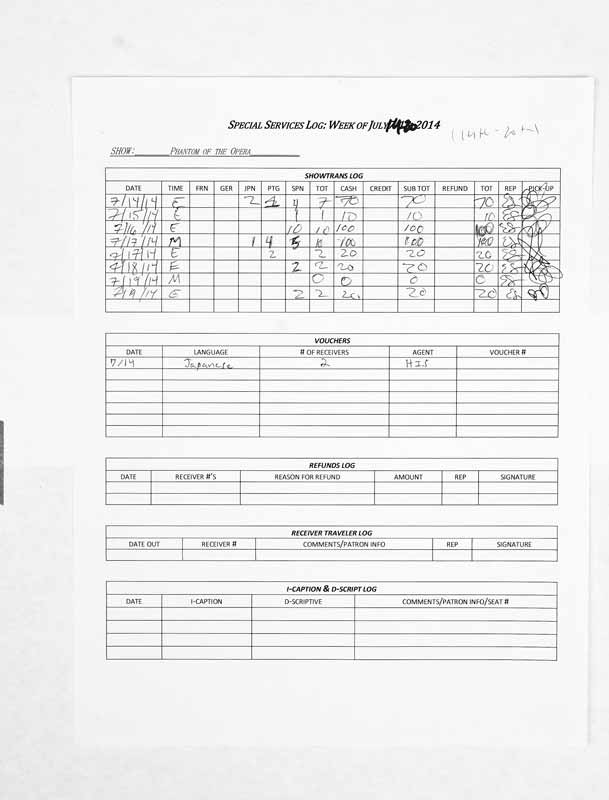 SPECIAL SERVICES LOG: WEEK OF JULY 14-20 2014 (14th - 20th)
SHOW: PHANTOM OF THE OPERA
SHOWTRANS LOG
DATE TIME FRN GER JPN PTG SPN TOT CASH CREDIT SUB TOT REFUND TOT REP PICK-UP
7/14/14 E 2 1 4 7 70 70 70
7/15/14 E 1 1 10 10 10
7/16/14 E 10 10 100 100 100
7/17/14 M 1 4 5 10 100 100 100
7/17/14 E 2 2 20 20 20
7/18/14 E 2 2 20 20 20
7/19/14 M 0 0 0 0
7/19/14 E 2 2 20 20 20
VOUCHERS
DATE LANGUAGE # OF RECEIVERS AGENT VOUCHER #
7/14 Japanese 2 HIS
REFUNDS LOG
DATE RECEIVER #'S REASON FOR REFUND AMOUNT REP SIGNATURE
RECEIVER TRAVELER LOG
DATE OUT RECEIVER # COMMENTS/PATRON INFO REP SIGNATURE
I-CAPTION & D-SCRIPT LOG
DATE I-CAPTION D-SCRIPTIVE COMMENTS/PATRON INFO/SEAT #